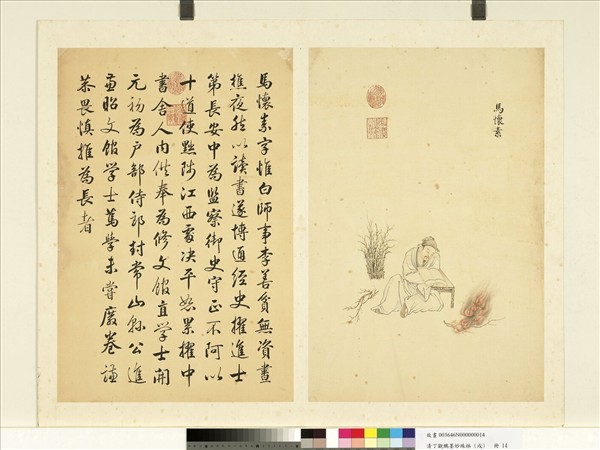 馬懷素
馬懷素字惟白師事李善貧無資晝
樵夜然以讀書遂博通經史擢進士
第長安中為監察御史守正不阿以
十道使黜陟江西處决平恕累擢中
書舍人內供奉為修文館直學士開
元初為户部侍郎封常山縣公進
兼昭文館學士篤學未嘗廢卷謙
恭畏慎推為長者
故畫 003646N000000014
清丁觀鵬墨妙珠林（戌） 冊 14